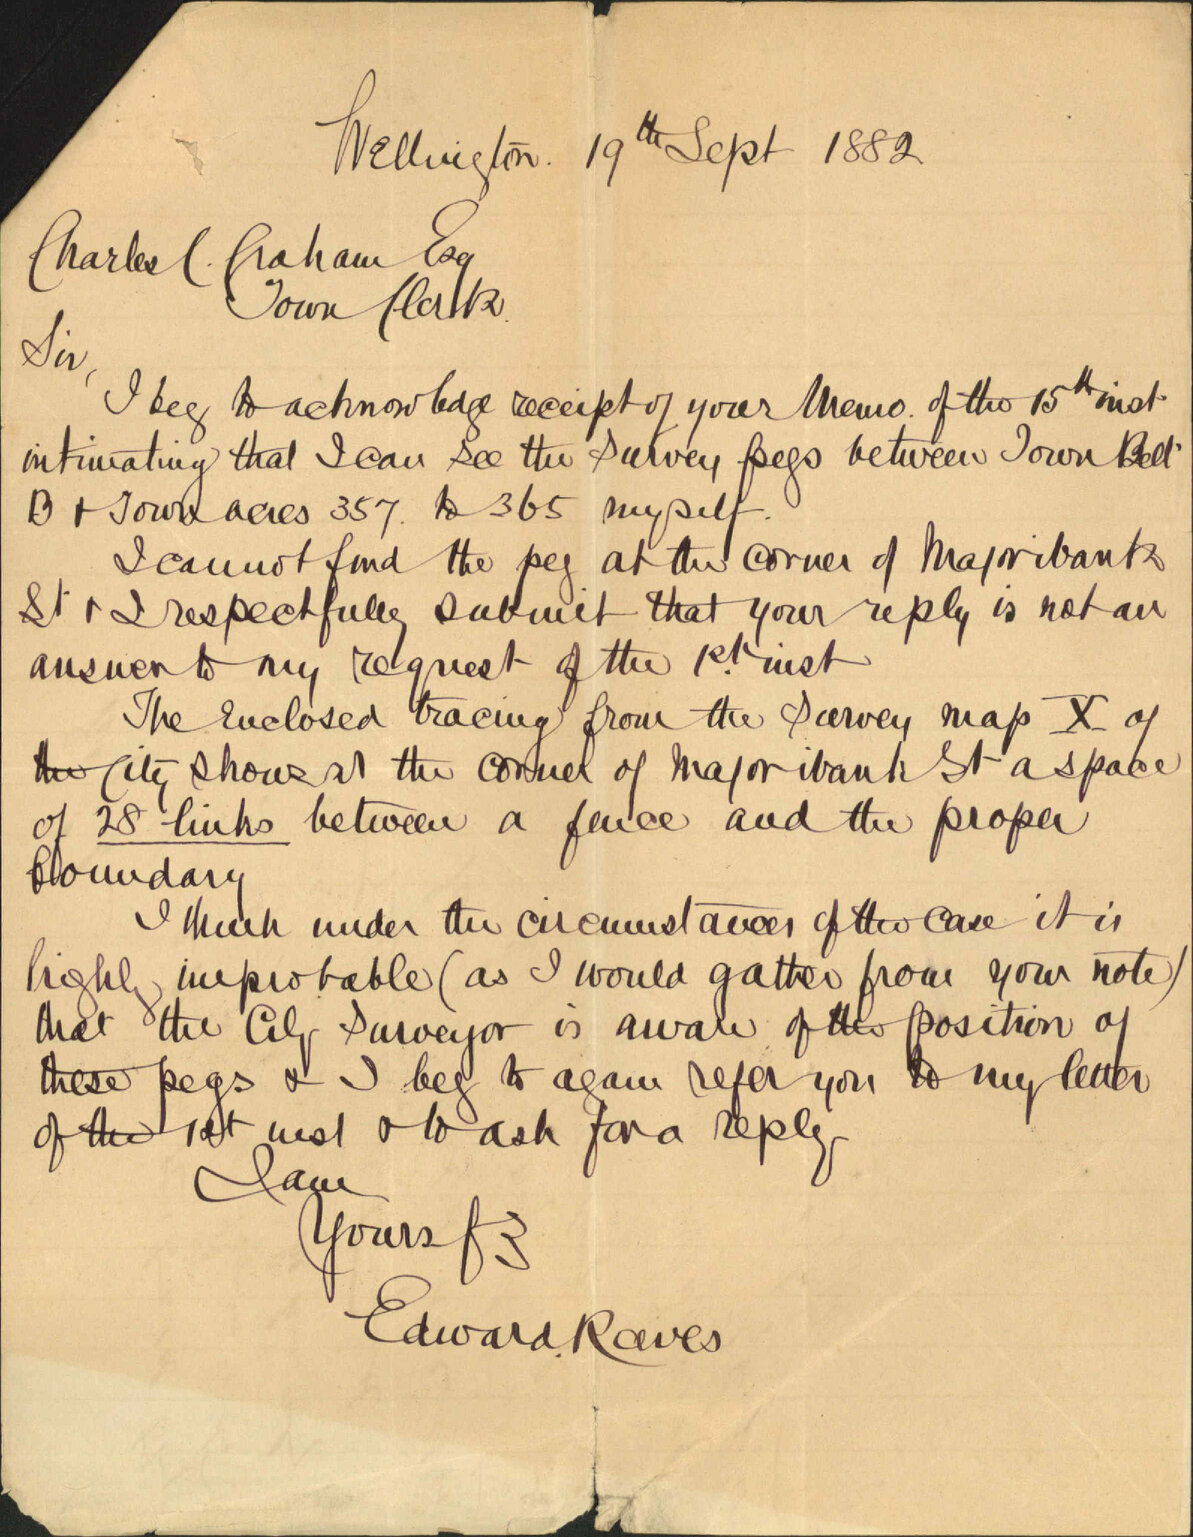 Wellington. 19th Sept 1882
Charles C. Graham Esq
Town Clerk.
Sir,
I beg to acknowledge receipt of your Memo. of the 15th inst
intimating that I can see the Survey pegs between Town Belt
B & Town acres 357. to 365 myself.
I cannot find the peg at the corner of Majoribank
St & I respectfully submit that your reply is not an
answer to my request of the 1st. inst
The Enclosed tracing from the Survey map X of
the City shows at the corner of Majoribank St a space
of 28 links between a fence and the proper
boundary
I think under the circumstances of the case it is
highly improbable (as I would gather from your note)
that the City Surveyor is aware of the position of
these pegs & I beg to again refer you to my letter
of the 1st inst & to ask for a reply
I am
Yours f
Edward Reeves